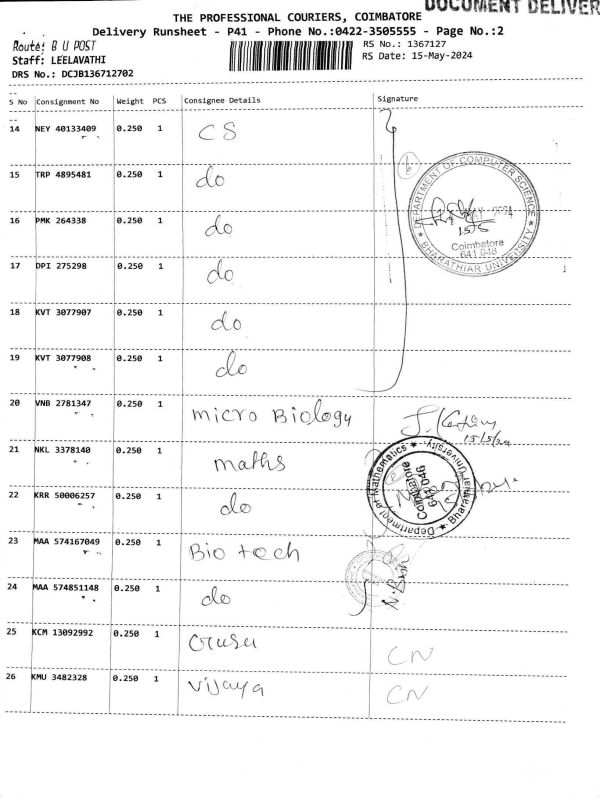 DOCUMENT DELIVER
THE PROFESSIONAL COURIERS, COIMBATORE
Delivery Runsheet - P41 - Phone No.:0422-3505555 - Page No.:2
Route: B U POST
RS No.: 1367127
Staff: LEELAVATHI
RS Date: 15-May-2024
DRS No.: DCJB136712702
S No Consignment No Weight PCS Consignee Details Signature
14 NEY 40133409 0.250 1 CS
15 TRP 4895481 0.250 1 do
16 PMK 264338 0.250 1 do
17 DPI 275298 0.250 1 do
18 KVT 3077907 0.250 1 do
19 KVT 3077908 0.250 1 do
20 VNB 2781347 0.250 1 micro Biology
21 NKL 3378140 0.250 1 maths
22 KRR 50006257 0.250 1 do
23 MAA 574167049 0.250 1 Bio tech
24 MAA 574851148 0.250 1 do
25 KCM 13092992 0.250 1 CN
26 KMU 3482328 0.250 1 vijaya CN
6
DEPARTMENT OF COMPUTER SCIENCE
15/5
Coimbatore
641 046
BHARATHIAR UNIVERSITY
15/5/24
Department of Mathematics
Coimbatore
641 046
Bharathiar University